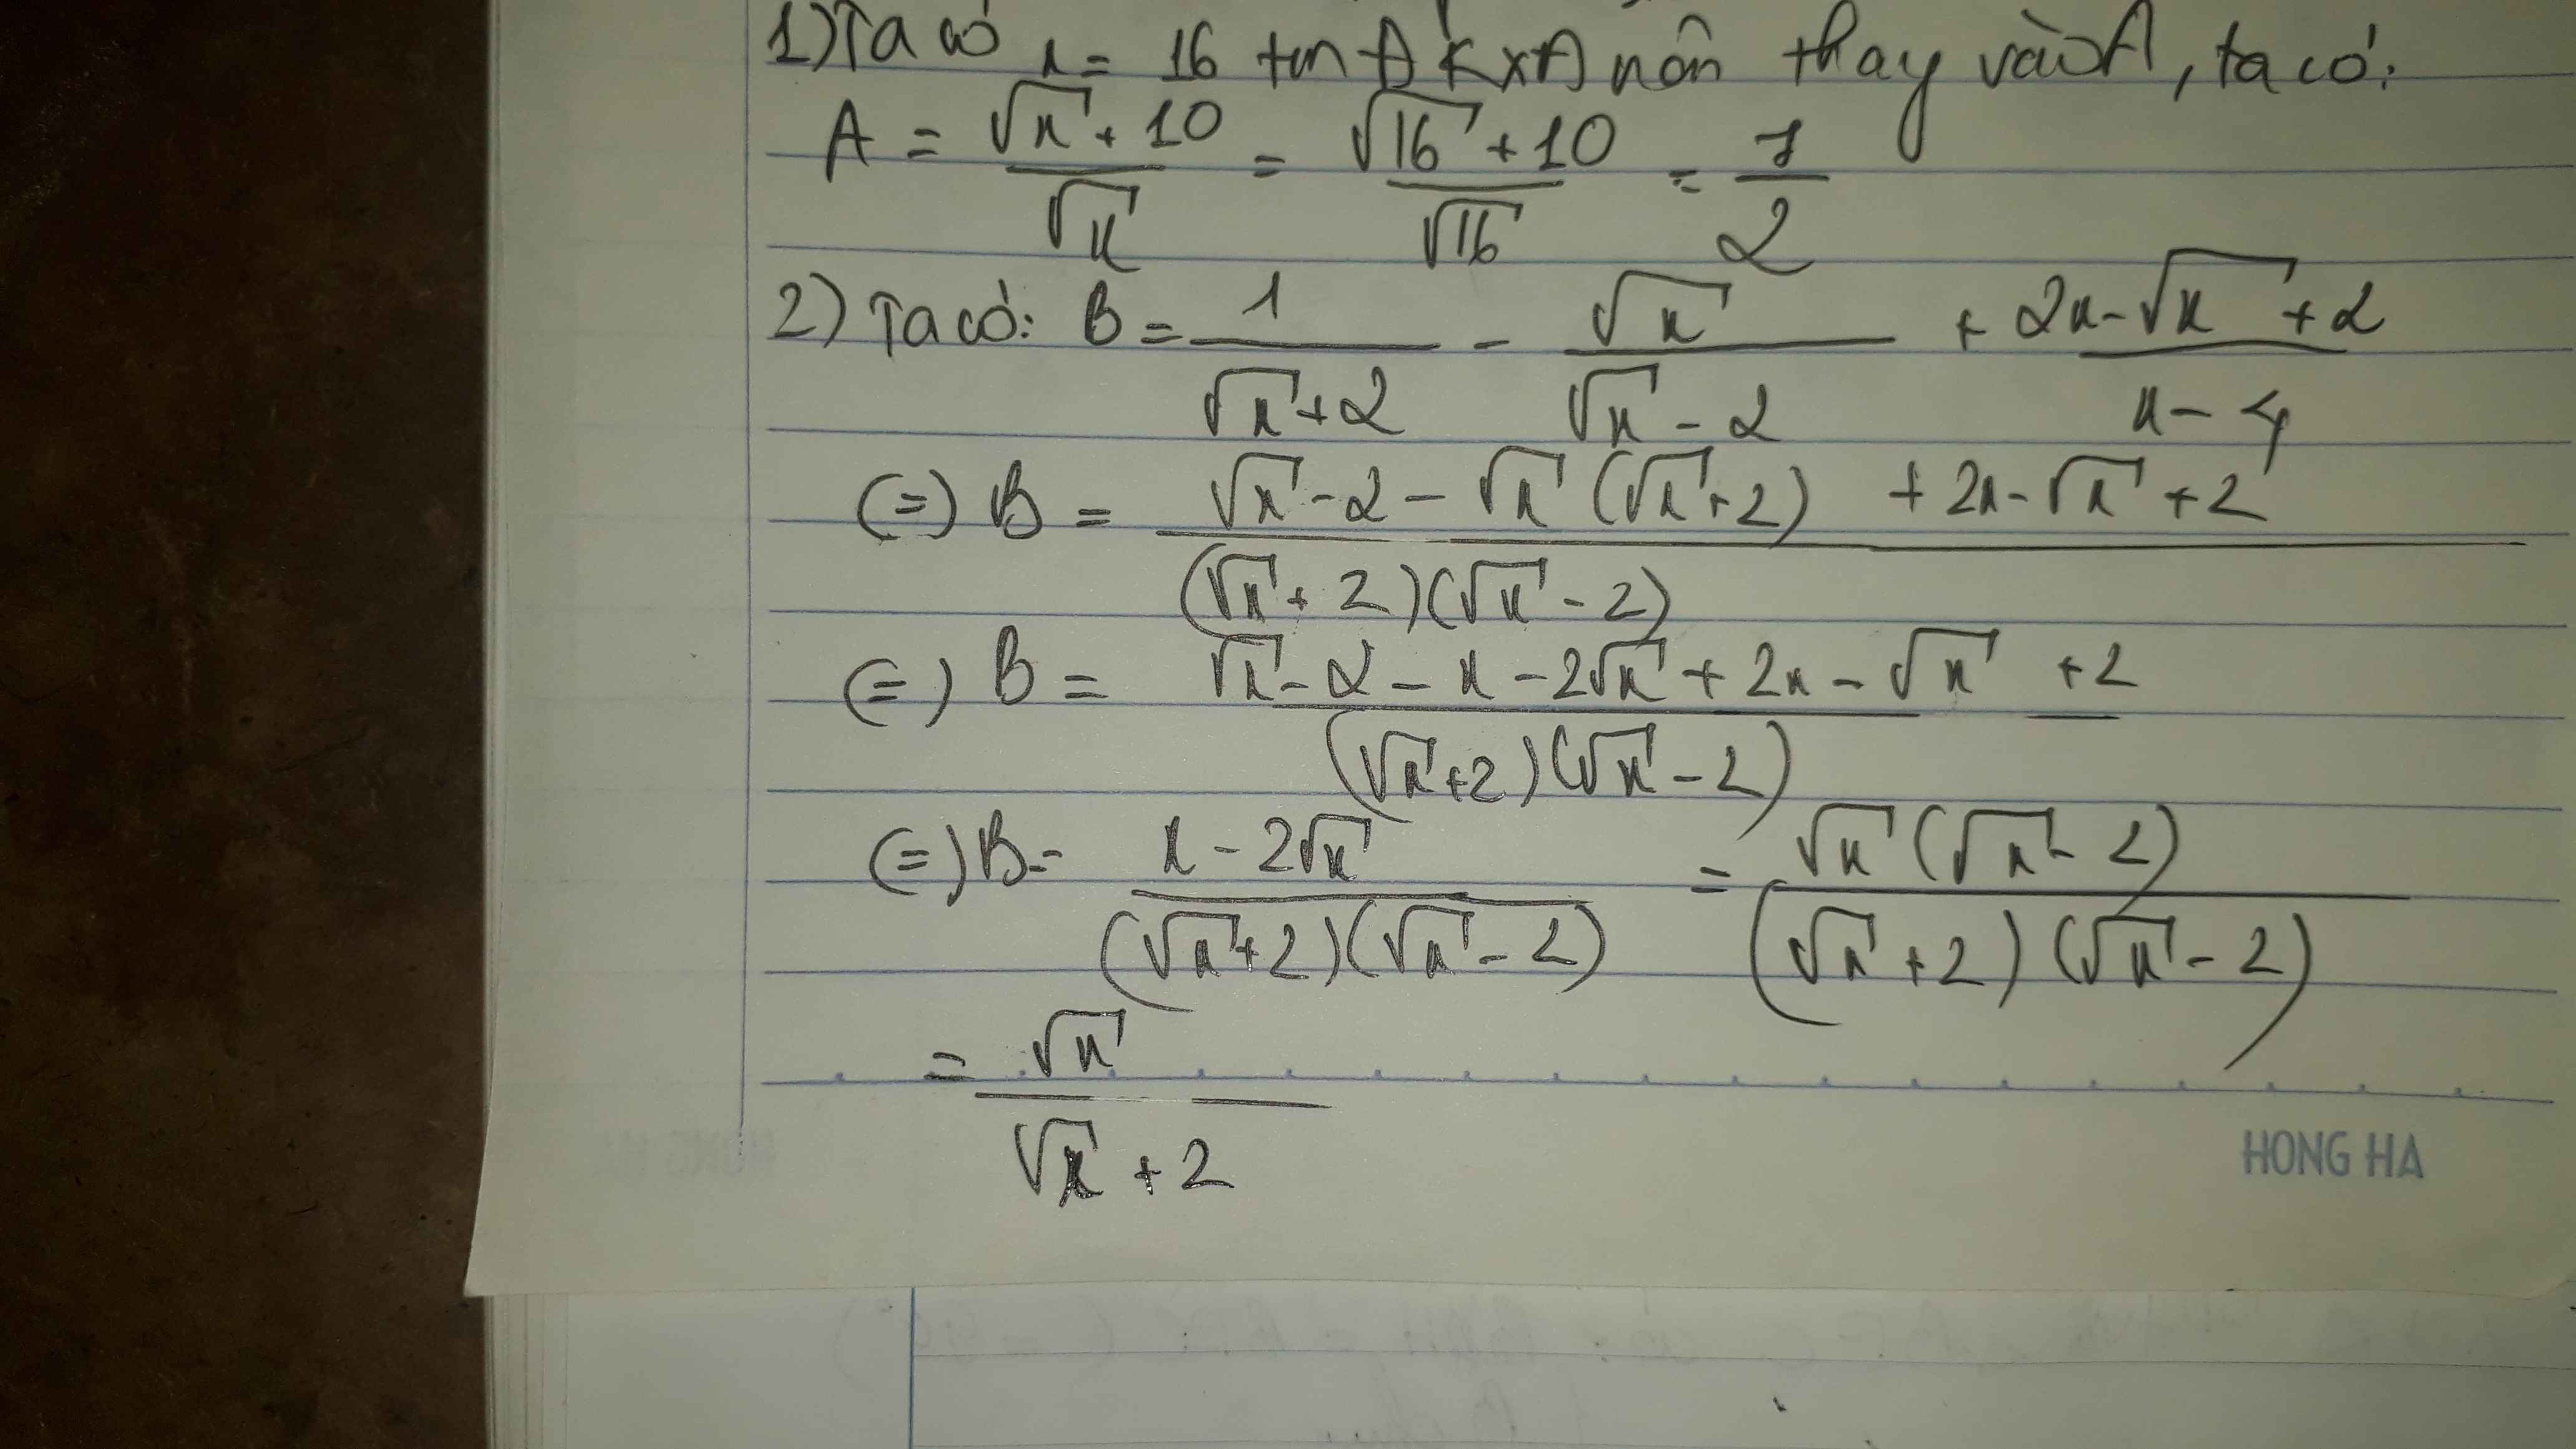 1) Ta có x = 16 tm ĐKXĐ nên thay vào A, ta có:
A = (√x + 10)/√x = (√16 + 10)/√16 = 7/2
2) Ta có: B = 1/(√x + 2) - √x/(√x - 2) + (2x - √x + 2)/(x - 4)
(=) B = (√x - 2 - √x (√x + 2) + 2x - √x + 2)/((√x + 2)(√x - 2))
(=) B = (√x - 2 - x - 2√x + 2x - √x + 2)/((√x + 2)(√x - 2))
(=) B = (x - 2√x)/((√x + 2)(√x - 2)) = (√x (√x - 2))/((√x + 2)(√x - 2))
= √x/(√x + 2)
HONG HA